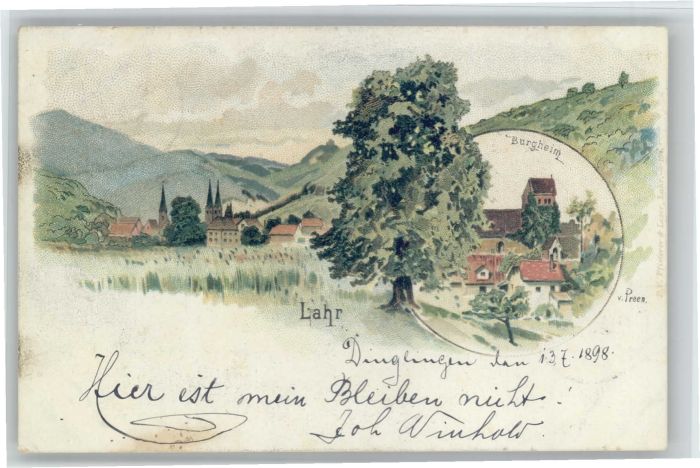 Burgheim
v. Preen.
Lahr
Dinglingen den 13.7.1898.
Hier ist mein Bleiben nicht!
Joh Winhold.